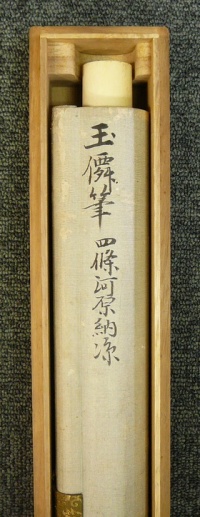 玉僲筆 四條河原納凉